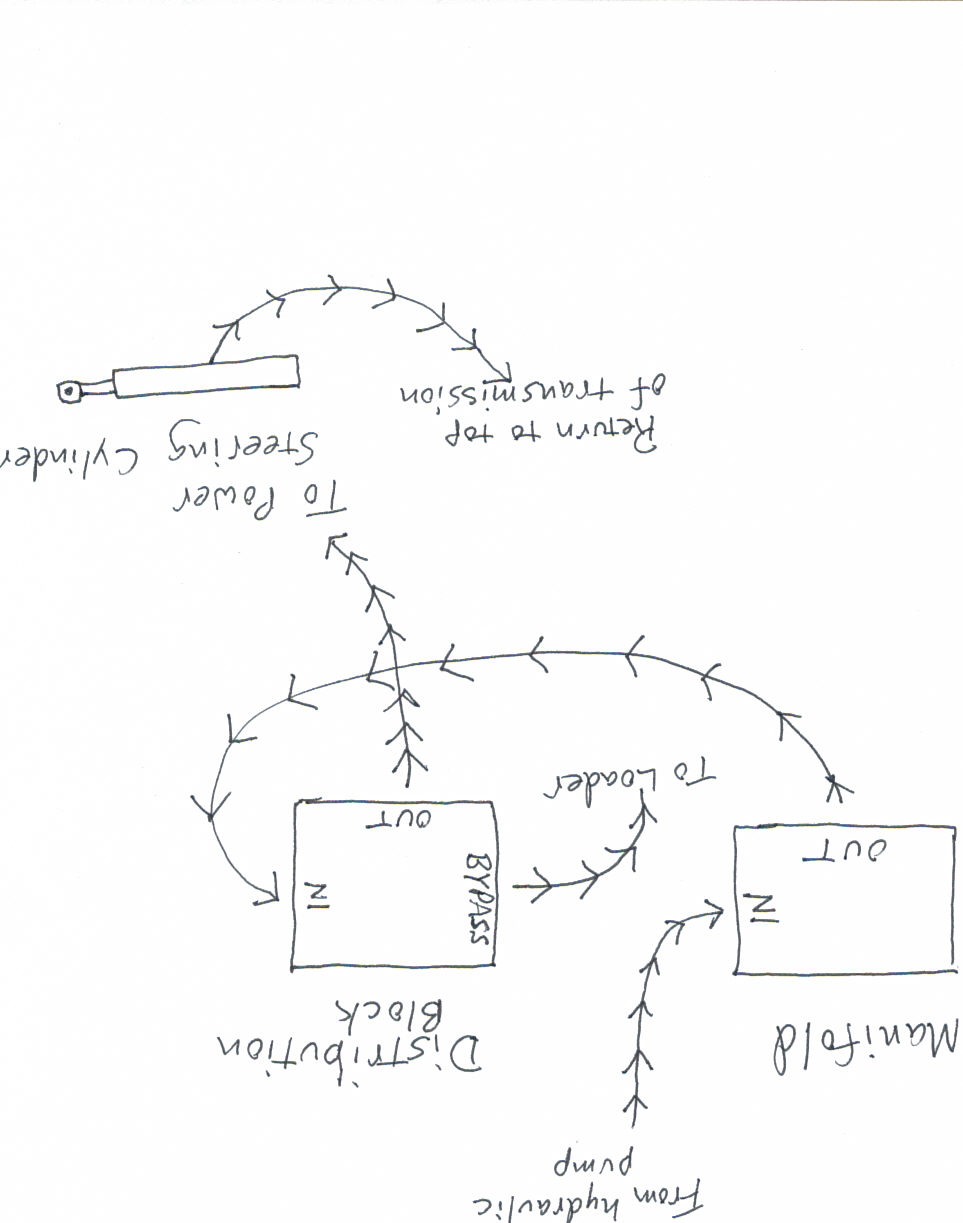 From hydraulic
pump
Manifold
IN
OUT
Distribution
Block
BYPASS
IN
OUT
To Loader
To Power
Steering Cylinder
Return to top
of transmission